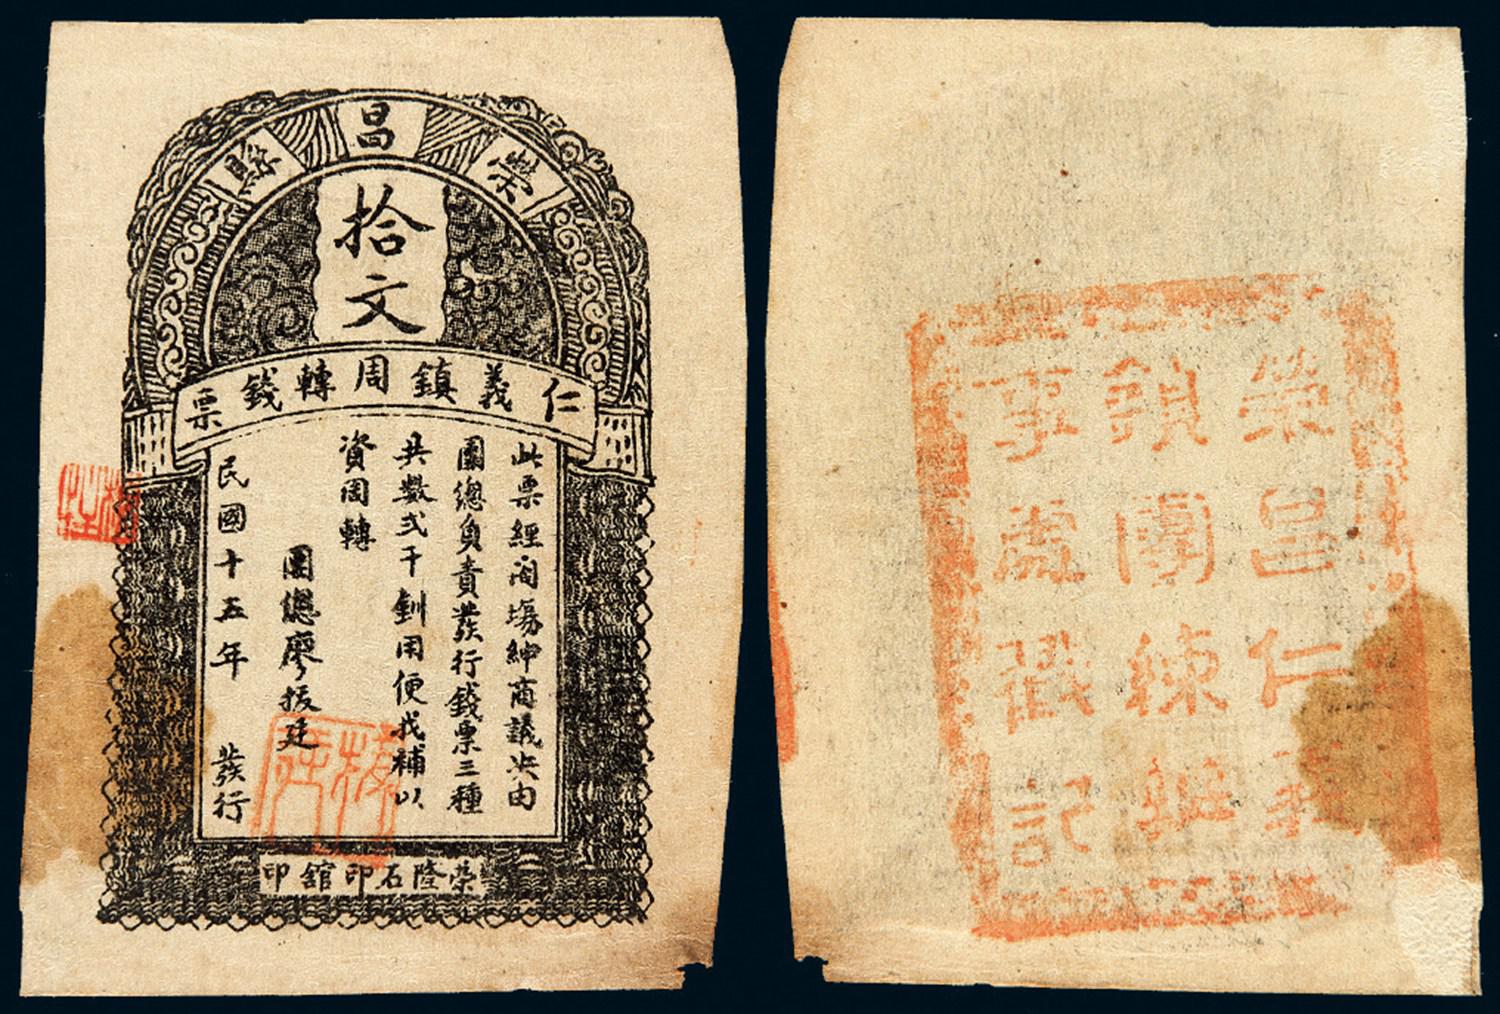 榮昌縣
拾文
仁義鎮周轉錢票
此票經闔塲紳商議决由
團總負責發行錢票三種
共數弍千釧用便找補以
資周轉
團總廖振廷
民國十五年 發行
榮隆石印館印
榮昌仁義
鎮團練辦
事處戳記